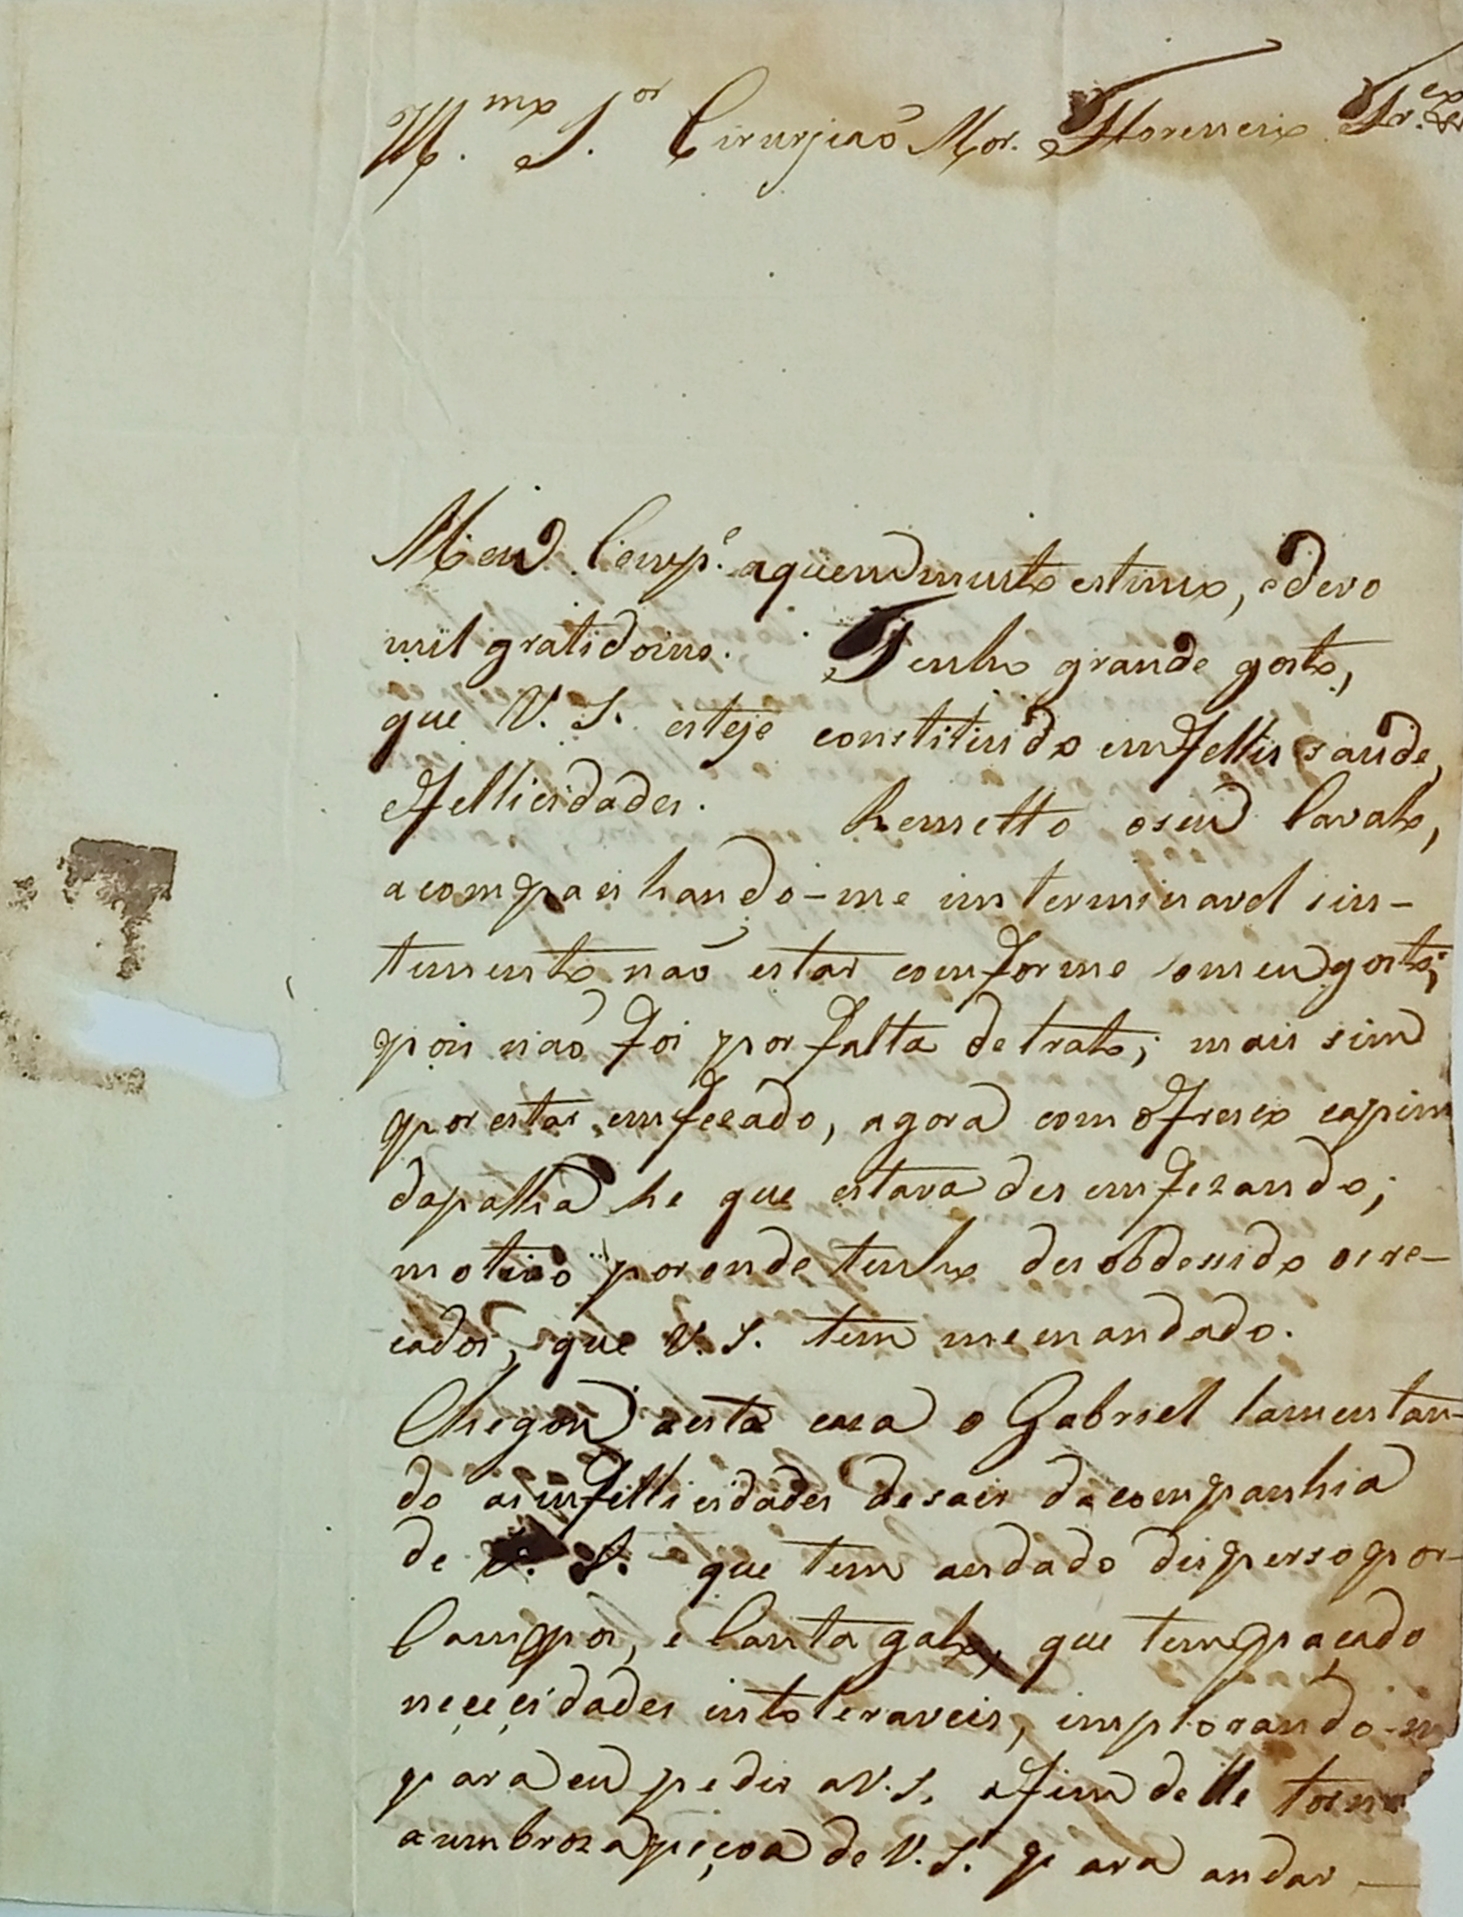 Ill.mo S.or Cirurjiaõ Mor. Florencio Fr.
Meu Comp.e aquem muito estimo, edevo
mil gratidoins. Tenho grande gosto,
que V. S. esteje constituido emfellis saude,
efellicidades. Remetto oseu Cavalo,
acompanhando-me imterminavel sin-
timento naõ estar comforme omeu gosto;
pois naõ foi por falta detrato; mais sim
por estar emfezado, agora com ofresco capim
dapalha he que estava desemfezando;
motivo por onde tenho desobdecido os re-
cados, que V. S. tem memandado.
Chegou aesta caza o Gabriel lamentan-
do asinfellicidades desair dacompanhia
de V. S. que tem andado disperso por
Campos, e Canta galo, que tem paçado
neçeçidades intoleraveis, implorando-m
para eu pedir aV. S. afim delle torn
aumbroza peçoa de V. S. para andar